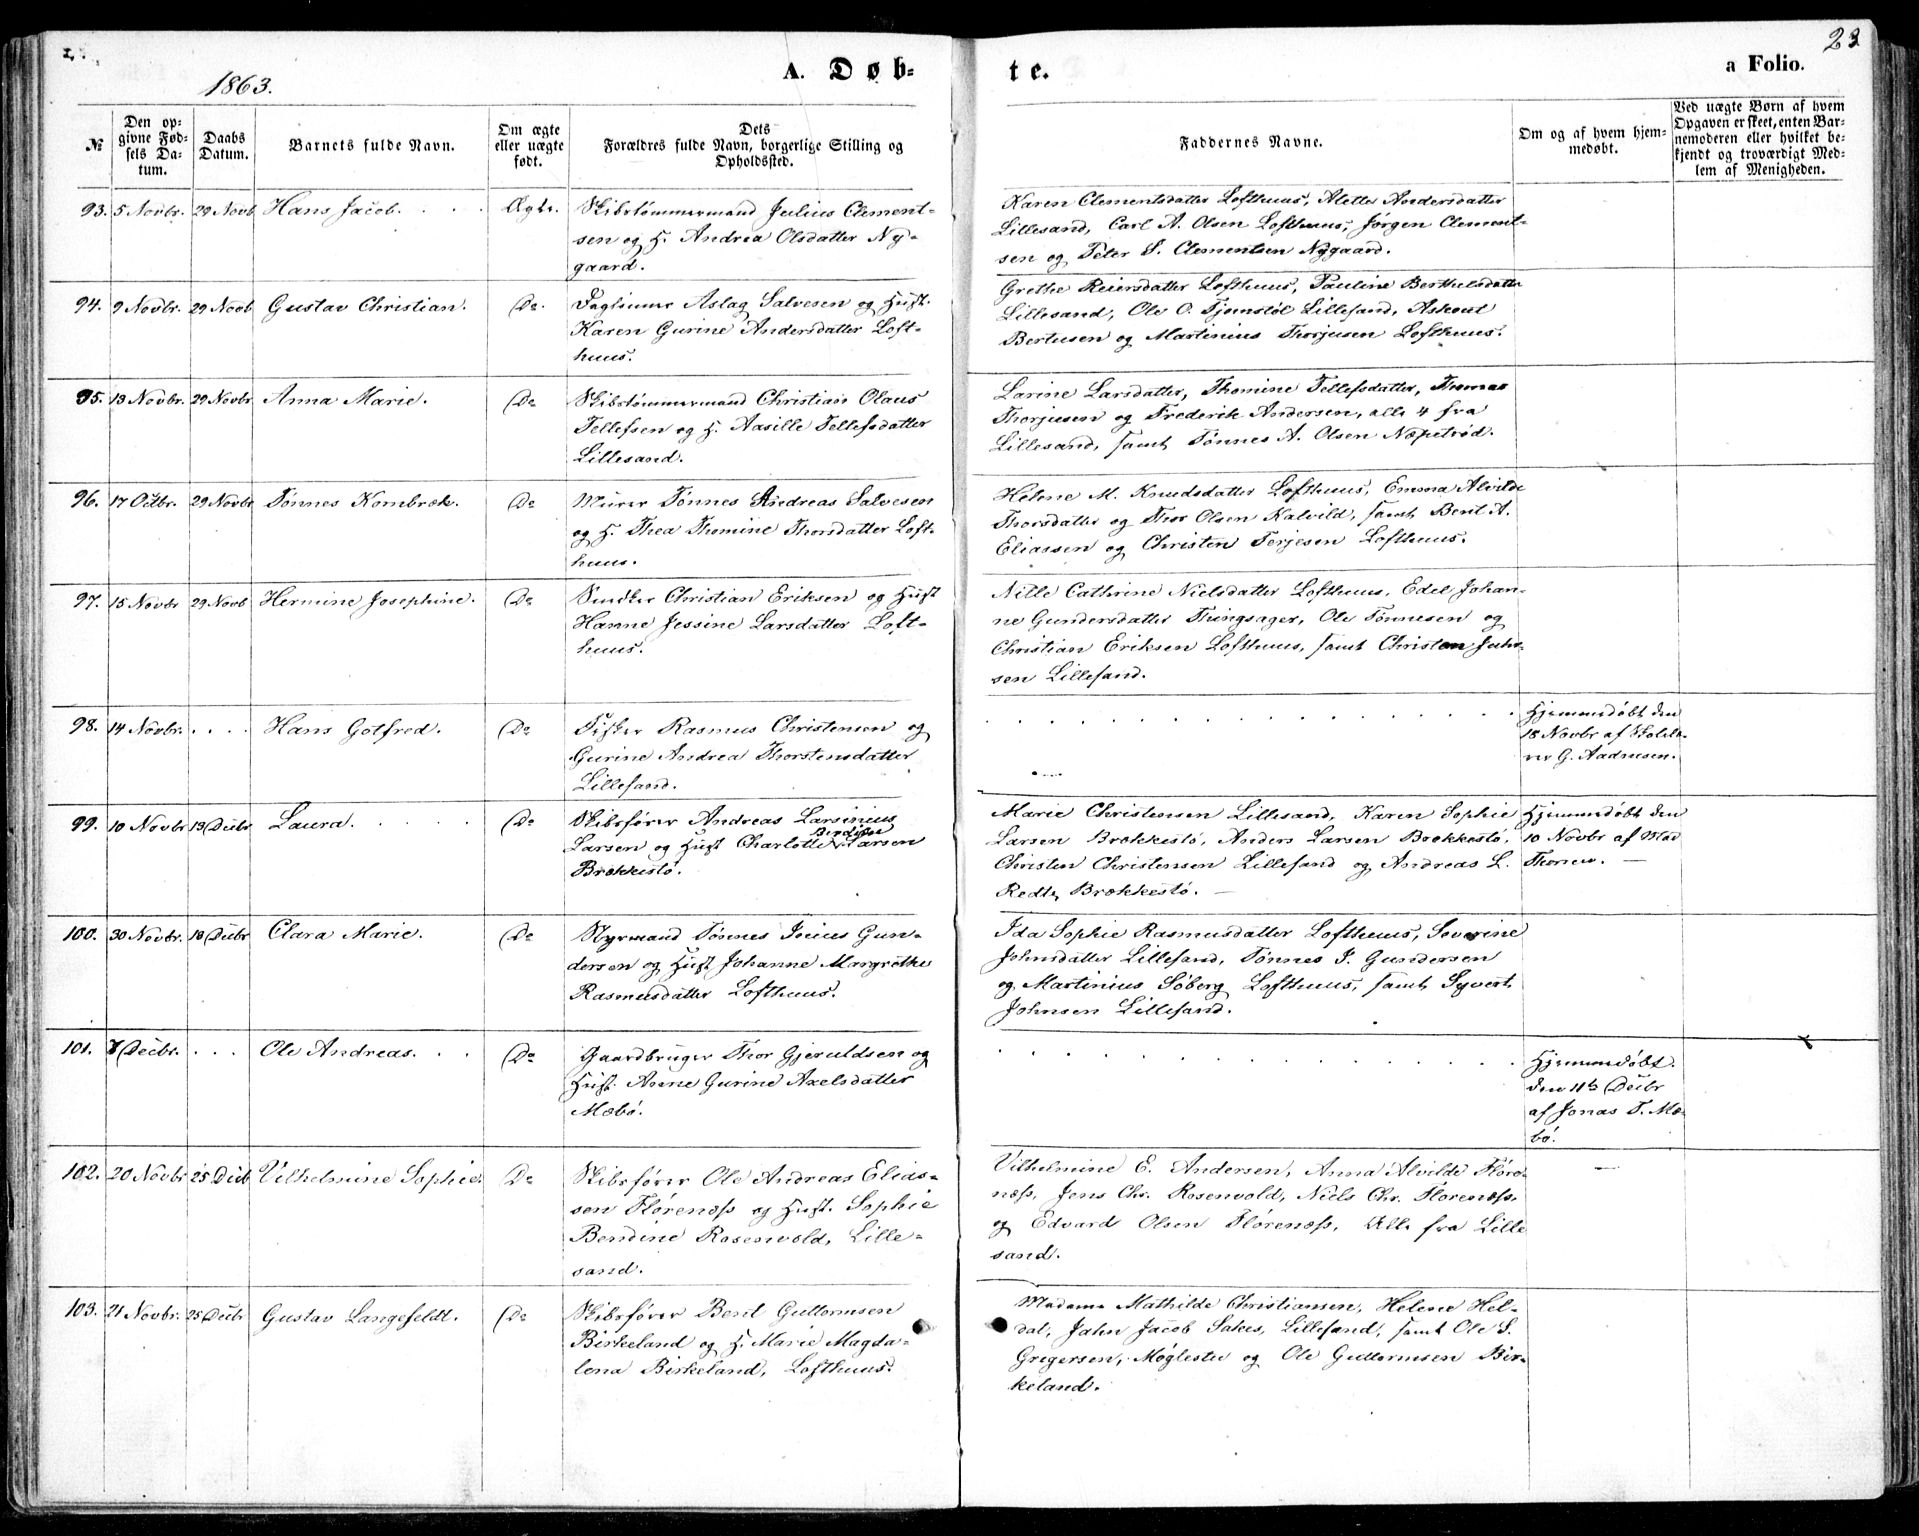 23
1863.
A. Døb-
te.
a Folio.
№
Den op-
givne Fød-
sels Da-
tum.
Daabs
Datum.
Barnets fulde Navn.
Om ægte
eller uægte
født.
Dets
Forældres fulde Navn, borgerlige Stilling og
Opholdssted.
Faddernes Navne.
Om og af hvem hjem-
medøbt.
Ved uægte Børn af hvem
Opgaven er skeet, enten Bar-
nemoderen eller hvilket be-
kjendt og troværdigt Med-
lem af Menigheden.
93. 5 Novbr. 29 Novb Hans Jacob. Ægte.
Skibstømmermand Julius Clement-
sen og H. Andrea Olsdatter Ny-
gaard.
Karen Clementsdatter Lofthuus, Alette Andersdatter
Lillesand, Carl A. Olsen Lofthuus, Jørgen Clement-
sen og Peter S. Clementsen Nygaard.
94. 9 Novbr. 29 Novb Gustav Christian. Do.
Daglønner Aslag Salvesen og Hust.
Karen Gurine Andersdatter Loft-
huus.
Grethe Reiersdatter Lofthuus, Pauline Berthelsdatter
Lillesand, Ole O. Tjømstøl Lillesand, Askout
Bertusen og Martinius Thorjusen Lofthuus.
95. 13 Novbr. 29 Novbr Anna Marie. Do
Skibstømmermand Christian Olaus
Tellefsen og H. Aasille Tellefsdatter
Lillesand.
Larine Larsdatter, Thomine Tellefsdatter, Thomas
Thorjusen og Frederik Andersen, alle 4 fra
Lillesand, samt Tønnes A. Olsen Næpetrød.
96. 17 Octbr. 29 Novbr Tønnes Kornbræk. Do
Murer Tønnes Andreas Salvesen
og H. Thea Thomine Thorsdatter Loft-
huus.
Helene M. Knudsdatter Lofthuus, Emma Alvilde
Thorsdatter og Thor Olsen Kalvild, samt Bent A.
Eliassen og Christen Terjesen Lofthuus.
97. 15 Novbr 29 Novb Hermine Josephine. Do
Snedker Christian Eriksen og Hust
Hanne Jessine Larsdatter Loft-
huus.
Nille Cathrine Nielsdatter Lofthuus, Edel Johan-
ne Gundersdatter Thingsager, Ole Tønnesen og
Christian Eriksen Lofthuus, samt Christen Juhr-
sen Lillesand.
98. 14 Novbr. . . . . Hans Gotfred. Do
Fisker Rasmus Christensen og
Gurine Andrea Thorstensdatter
Lillesand.
Hjemmedøbt den
18 Novbr af Skolelæ-
rer G. Aadnesen.
99. 10 Novbr 13 Decbr Laura. Do
Skibsfører Andreas Larsinius
Larsen og Hust Charlotte Bendine Larsen
Brækkestø.
Marie Christensen Lillesand, Karen Sophie
Larsen Brækkestø, Anders Larsen Brækkestø,
Christen Christensen Lillesand og Andreas L.
Redte, Brækkestø. —
Hjemmedøbt den
10 Novbr af Mad
Thorsen. —
100. 30 Novbr. 18 Decbr Clara Marie. Do
Styrmand Tønnes Gun-
dersen og Hust Johanne Margrethe
Rasmusdatter Lofthuus.
Ida Sophie Rasmusdatter Lofthuus, Severine
Johnsdatter Lillesand, Tønnes J. Gundersen
og Martinius Søberg Lofthuus, samt Syvert
Johnsen Lillesand.
101. 8 Decbr. . . . Ole Andreas. Do
Gaardbruger Thor Gjeruldsen og
Hust. Anne Gurine Axelsdatter
Mæbø.
Hjemmedøbt
den 11te Decbr
af Jonas T. Mæ-
bø.
102. 20 Novbr 25 Decb Vilhelmine Sophie. Do
Skibsfører Ole Andreas Elias-
sen Flørenæss og Hust. Sophie
Bendine Rosenvold, Lille-
sand.
Vilhelmine E. Andersen, Anna Alvilde Fløre-
næss, Jens Chr. Rosenvold, Niels Chr. Flørenæss,
og Edvard Olsen Flørenæss, Alle fra Lille
sand.
—
103. 21 Novbr. 25 Decbr Gustav Langefeldt. Do
Skibsfører Bent Guttormsen
Birkeland og H. Marie Magda-
lena Birkeland, Lofthuus.
Madame Mathilde Christiansen, Helene Hel-
dal, Jahn Jacob Sakes, Lillesand, samt Ole S.
Gregersen, Møglestu og Ole Guttormsen Bir-
keland.